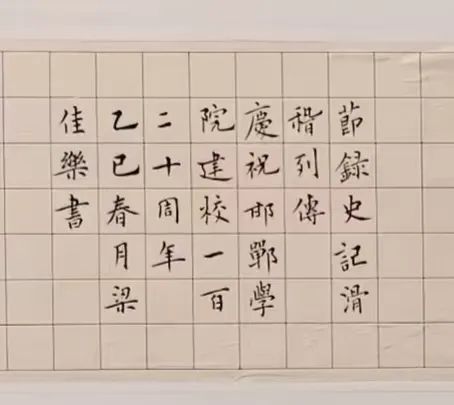 節録史記滑
稽列傳
慶祝邯鄲學
院建校一百
二十周年
乙巳春月梁
佳樂書